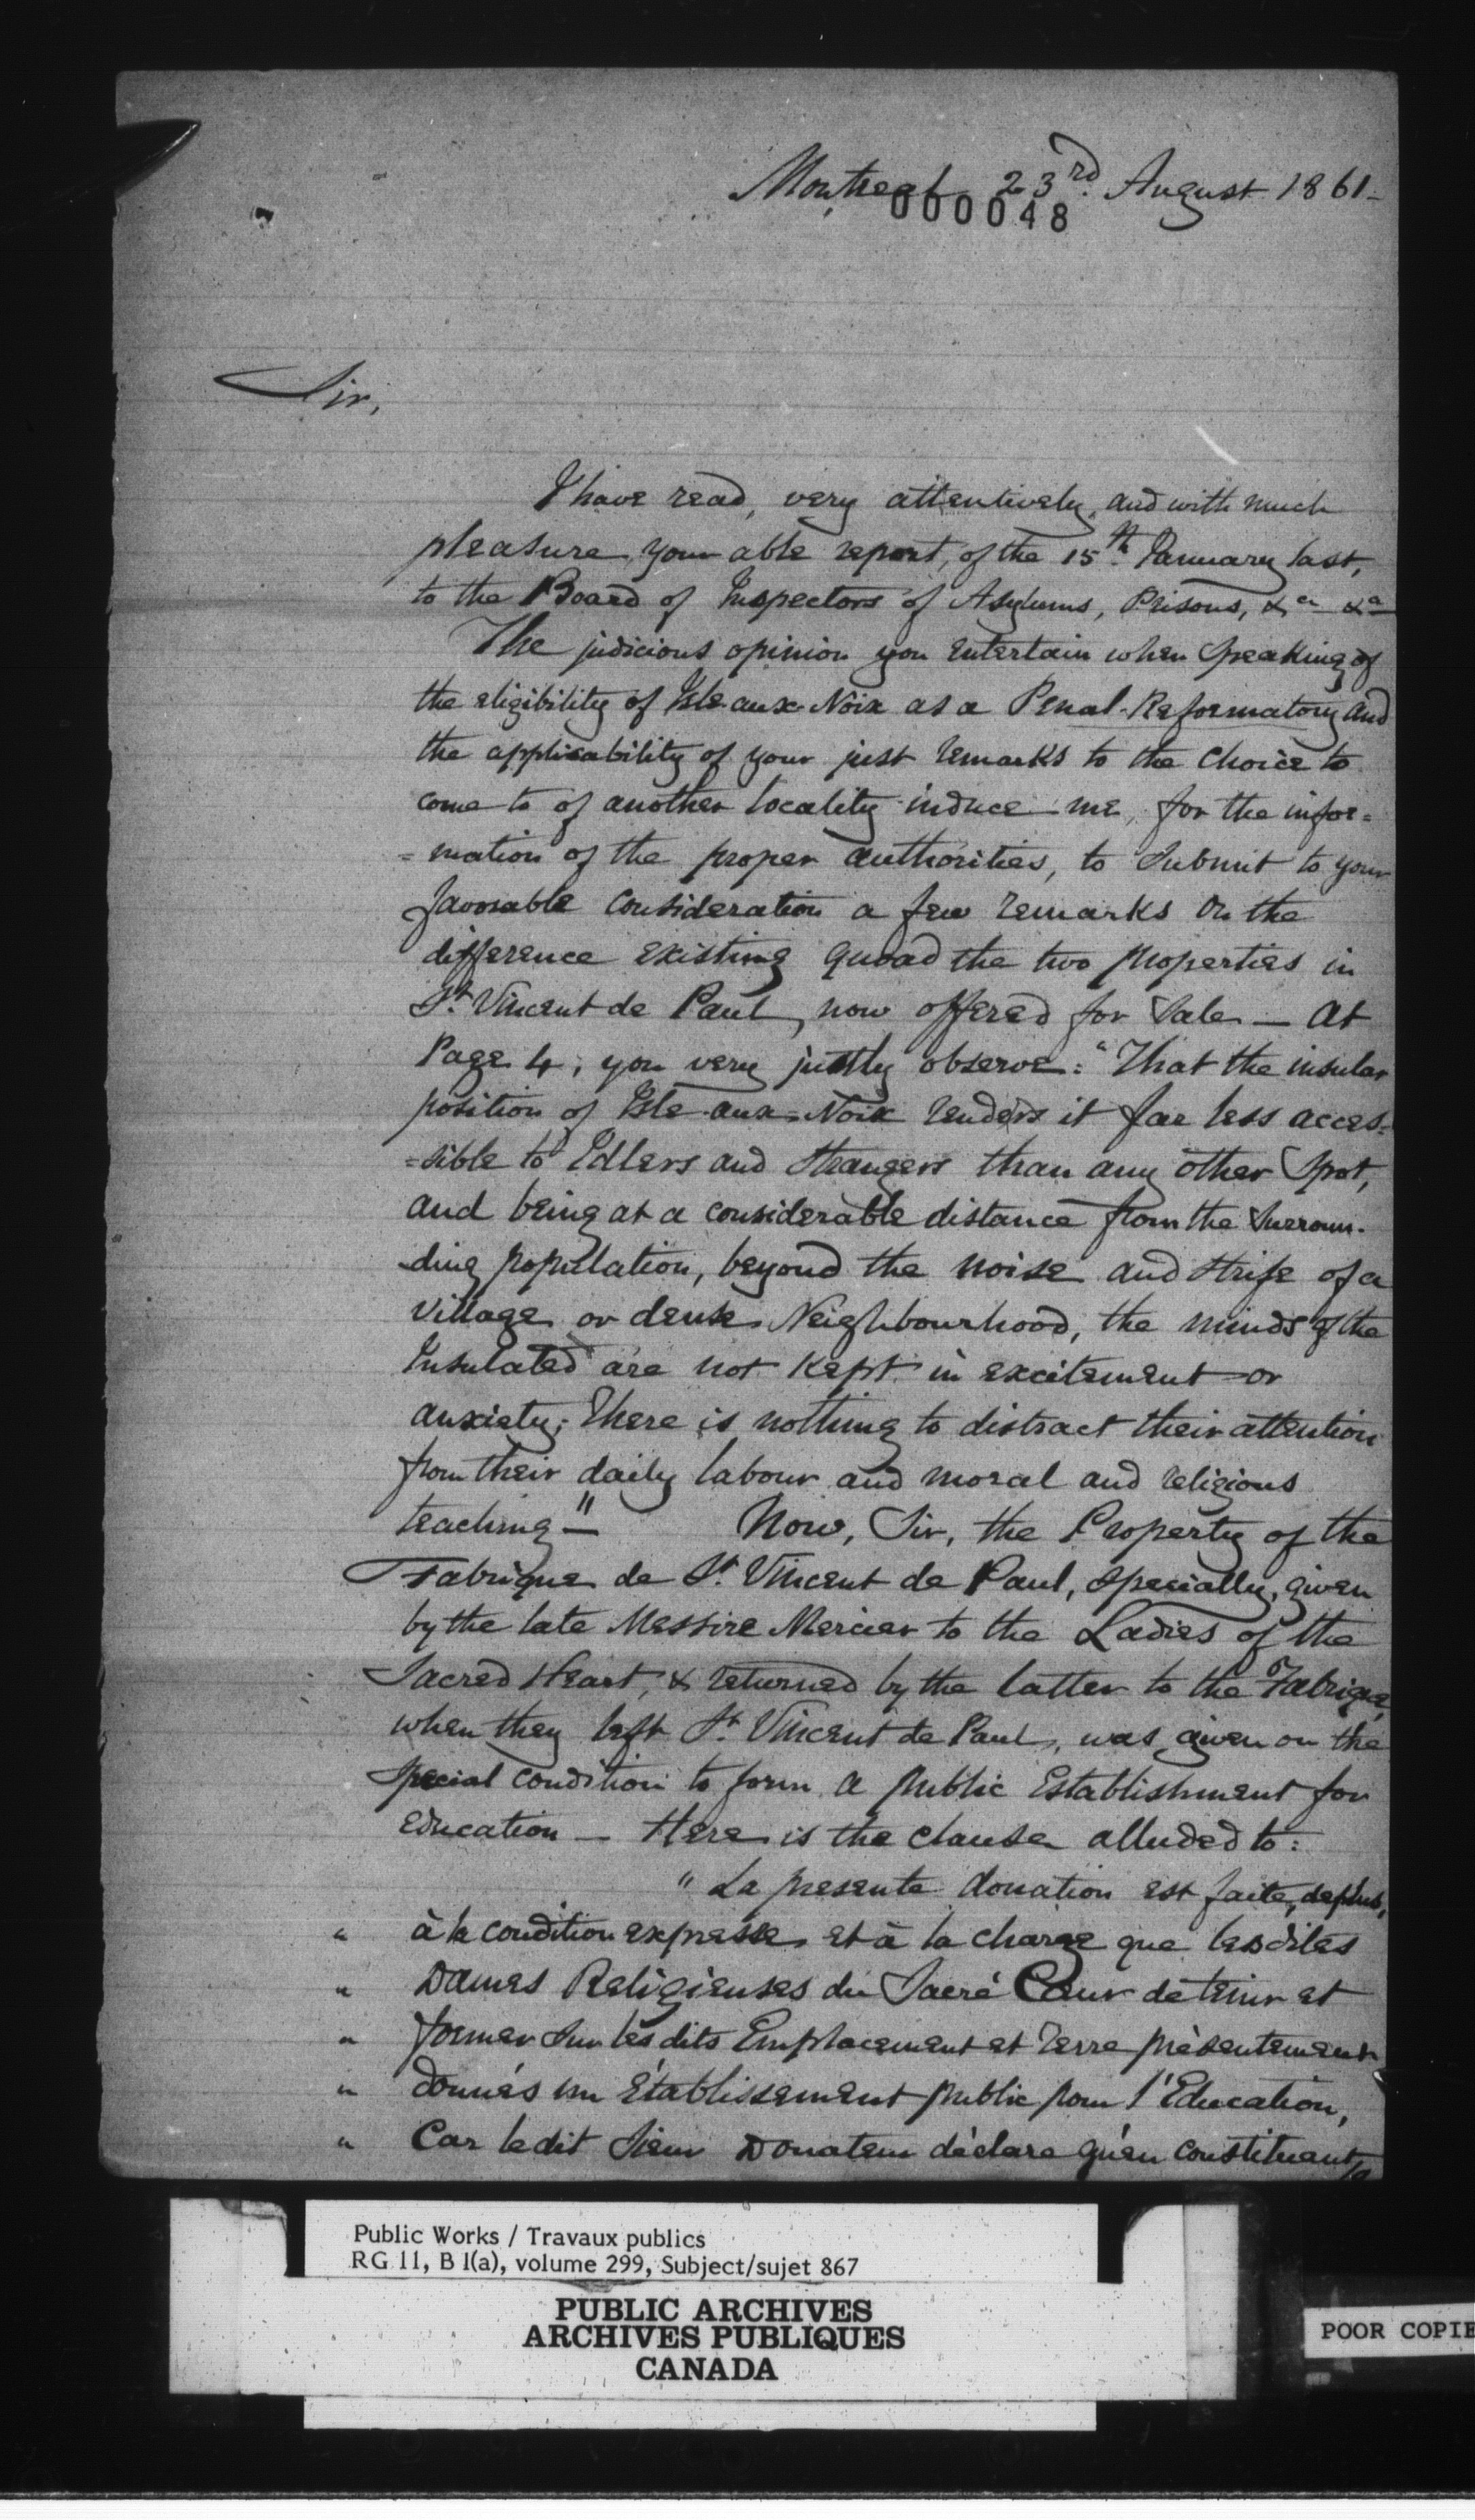 Montreal 23rd. August 1861-
000048
Sir,
I have read, very attentively, and with much
pleasure, your able report, of the 15th. January last,
to the Board of Inspectors of Asylums, Prisons, &a &a
The judicious opinion you entertain when speaking of
the eligibility of Isle-aux-Noix as a Penal-Reformatory and
the applicability of your just remarks to the choice to
come to of another locality induce me, for the infor=
=mation of the proper authorities, to submit to your
favorable consideration a few remarks on the
difference existing quoad the two properties in
St. Vincent de Paul, now offered for Sale — At
Page 4, you very justly observe: "That the insular
position of Isle-aux-Noix renders it far less acces=
=sible to Idlers and strangers than any other Spot,
and being at a considerable distance from the surroun-
-ding population, beyond the noise and strife of a
Village or dense Neighbourhood, the minds of the
Insulated are not kept in excitement or
anxiety; There is nothing to distract their attention
from their daily labour and moral and religious
teaching" — Now, Sir, the Property of the
Fabrique de St. Vincent de Paul, specially, given
by the late Messire Mercier to the Ladies of the
Sacred Heart, & returned by the latter to the Fabrique,
when they left St. Vincent de Paul, was given on the
special condition to form a public Establishment for
education — Here is the clause alluded to:
" La presente donation est faite, deplus,
" à la condition expresse et à la charge que lesdites
" Dames Religieuses du Sacré Cœur de tenir et
" former sur les dits Emplacement et Terre présentement
" donnés un Établissement public pour l'Education,
" Car ledit Sieur Donateur déclare qu'en constituant
Public Works / Travaux publics
RG 11, B 1(a), volume 299, Subject/sujet 867
PUBLIC ARCHIVES
ARCHIVES PUBLIQUES
CANADA
POOR COPIE